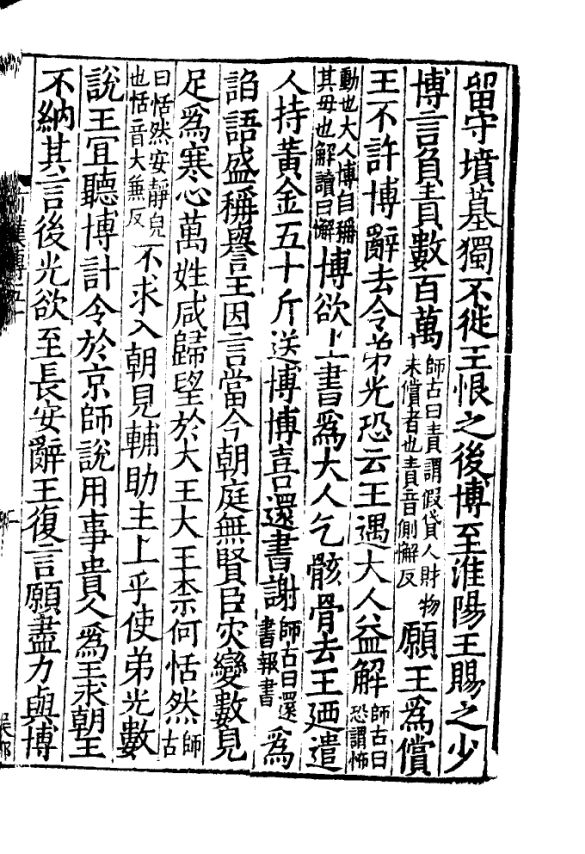 留守墳墓獨不徙王恨之後博至淮陽王賜之少
博言負責數百萬師古曰責謂假貸人財物未償者也責音側懈反願王爲償
王不許博辭去令弟光恐云王遇大人益解師古曰恐謂怖
動也大人博自稱其母也解讀曰懈博欲上書爲大人乞骸骨去王廼遣
人持黃金五十斤送博博喜還書謝師古曰還書報書爲
諂語盛稱譽王因言當今朝庭無賢臣灾變數見
足爲寒心萬姓咸歸望於大王大王柰何恬然師古
曰恬然安靜皃也恬音大兼反不求入朝見輔助主上乎使弟光數
說王宜聽博計令於京師說用事貴人爲王求朝王
不納其言後光欲至長安辭王復言願盡力與博